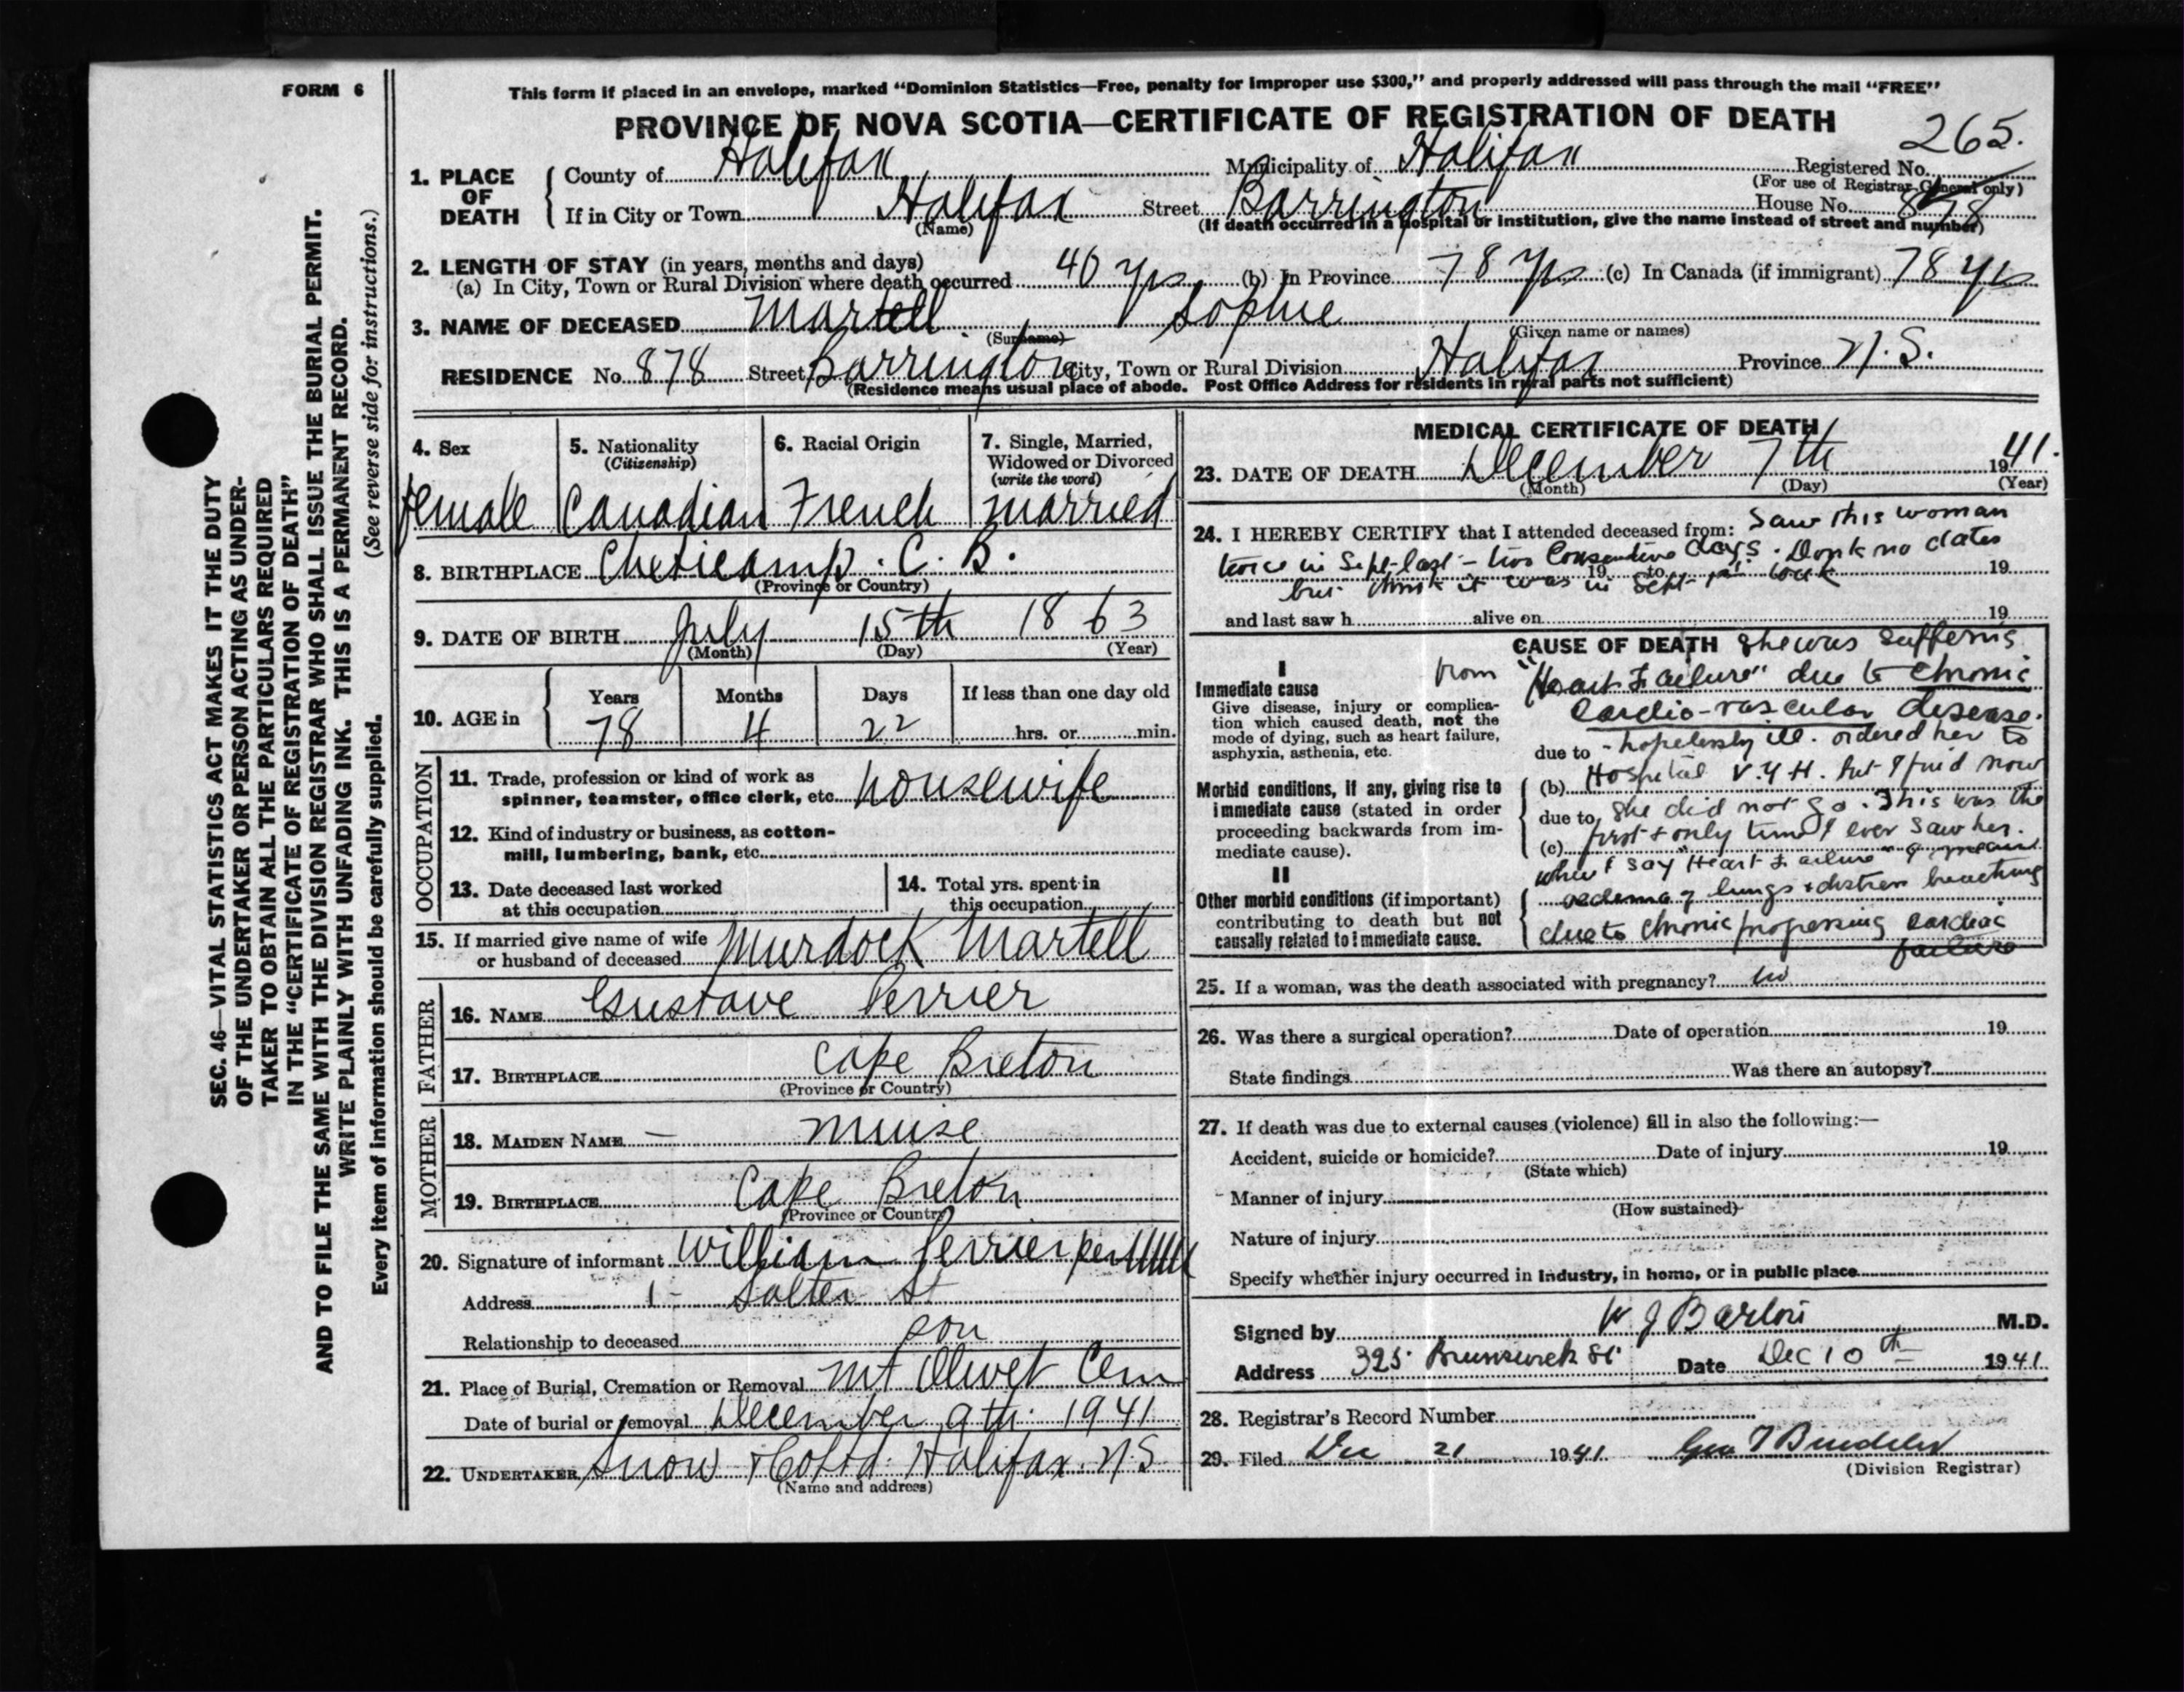 FORM 6
This form if placed in an envelope, marked "Dominion Statistics—Free, penalty for improper use $300," and properly addressed will pass through the mail "FREE"
PROVINCE OF NOVA SCOTIA—CERTIFICATE OF REGISTRATION OF DEATH
265.
1. PLACE OF DEATH
County of Halifax Municipality of Halifax Registered No.
(For use of Registrar General only)
If in City or Town Halifax Street Barrington House No. 878
(Name) (If death occurred in a hospital or institution, give the name instead of street and number)
2. LENGTH OF STAY (in years, months and days)
(a) In City, Town or Rural Division where death occurred 40 yrs (b) In Province 78 yrs (c) In Canada (if immigrant) 78 yrs
3. NAME OF DECEASED Martell Sophie
(Surname) (Given name or names)
RESIDENCE No. 878 Street Barrington City, Town or Rural Division Halifax Province N.S.
(Residence means usual place of abode. Post Office Address for residents in rural parts not sufficient)
4. Sex
female
5. Nationality
(Citizenship)
Canadian
6. Racial Origin
French
7. Single, Married,
Widowed or Divorced
(write the word)
married
8. BIRTHPLACE Cheticamp. C. B.
(Province or Country)
9. DATE OF BIRTH July 15th 1863
(Month) (Day) (Year)
10. AGE in
Years Months Days If less than one day old
78 4 22 hrs. or min.
OCCUPATION
11. Trade, profession or kind of work as
spinner, teamster, office clerk, etc. housewife
12. Kind of industry or business, as cotton-
mill, lumbering, bank, etc.
13. Date deceased last worked
at this occupation
14. Total yrs. spent in
this occupation
15. If married give name of wife
or husband of deceased Murdock Martell
FATHER
16. NAME Gustave Perrier
17. BIRTHPLACE Cape Breton
(Province or Country)
MOTHER
18. MAIDEN NAME — Muise
19. BIRTHPLACE Cape Breton
(Province or Country)
20. Signature of informant William Perrier per
Address 1 - Salter St
Relationship to deceased son
21. Place of Burial, Cremation or Removal Mt Olivet Cem
Date of burial or removal December 9th 1941
22. UNDERTAKER Snow & Co Ltd. Halifax. N S
(Name and address)
MEDICAL CERTIFICATE OF DEATH
23. DATE OF DEATH December 7th 1941.
(Month) (Day) (Year)
24. I HEREBY CERTIFY that I attended deceased from: Saw this woman
twice in Sept-last - two Consecutive days. no dates
19 to 19
but think it was in Sept 1st week
and last saw h alive on 19
CAUSE OF DEATH She was suffering
I
Immediate cause
Give disease, injury or complica-
tion which caused death, not the
mode of dying, such as heart failure,
asphyxia, asthenia, etc.
from "Heart Failure" due to chronic
Cardio-vascular disease.
due to - hopelessly ill. ordered her to
Morbid conditions, if any, giving rise to
immediate cause (stated in order
proceeding backwards from im-
mediate cause).
(b) Hospital V.G H. but I find now
due to she did not go. This was the
(c) first & only time I ever saw her.
when I say "Heart Failure" I mean
II
Other morbid conditions (if important)
contributing to death but not
causally related to immediate cause.
oedema of lungs & distress breathing
due to chronic progressing cardiac
failure
25. If a woman, was the death associated with pregnancy? no
26. Was there a surgical operation? Date of operation 19
State findings Was there an autopsy?
27. If death was due to external causes (violence) fill in also the following:—
Accident, suicide or homicide? Date of injury 19
(State which)
Manner of injury
(How sustained)
Nature of injury
Specify whether injury occurred in Industry, in home, or in public place
Signed by W J Barton M.D.
Address 325 Brunswick St Date Dec 10th 1941
28. Registrar's Record Number
29. Filed Dec 21 1941.
(Division Registrar)
SEC. 46—VITAL STATISTICS ACT MAKES IT THE DUTY
OF THE UNDERTAKER OR PERSON ACTING AS UNDER-
TAKER TO OBTAIN ALL THE PARTICULARS REQUIRED
IN THE "CERTIFICATE OF REGISTRATION OF DEATH"
AND TO FILE THE SAME WITH THE DIVISION REGISTRAR WHO SHALL ISSUE THE BURIAL PERMIT.
WRITE PLAINLY WITH UNFADING INK. THIS IS A PERMANENT RECORD.
Every item of information should be carefully supplied. (See reverse side for instructions.)